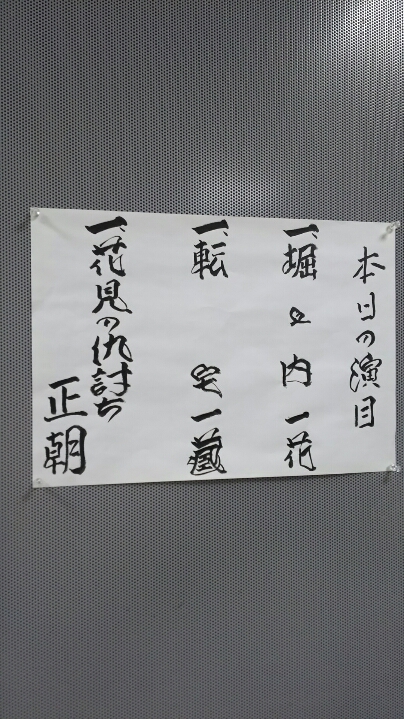 本日の演目
一、堀之内 一花
一、転宅 一蔵
一、花見の仇討ち
正朝